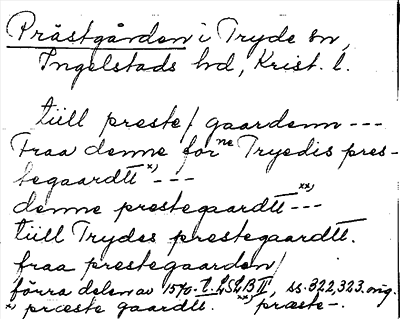 Prästgården i Tryde sn,
Ingelstads hd, Krist. l.
tiill preste/gaardenn ---
Fraa denne for ne Tryedis pres-
tegaardtt x) ---
denne prestegaardtt xx) ---
tiill Trydes prestegaardtt.
fraa prestegaarden/
förra delen av 1570. I. LSLB II, ss. 322, 323. orig.
x) præste gaardtt. xx) præste-.